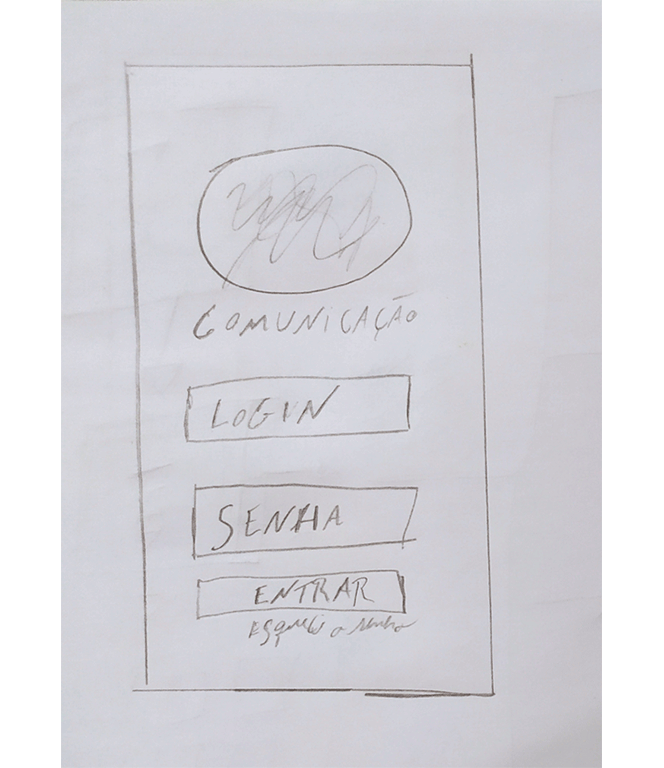 COMUNICAÇÃO
LOGIN
SENHA
ENTRAR
Esqueci a senha